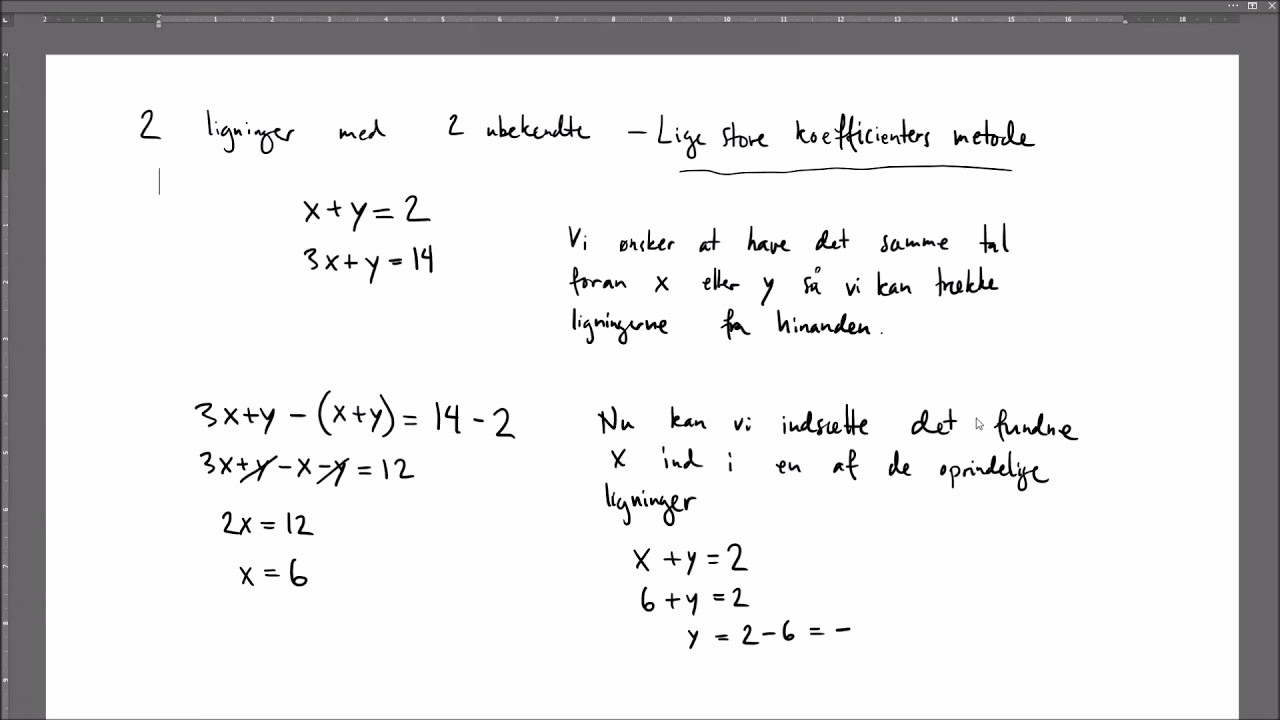 2 ligninger med 2 ubekendte - Lige store koefficienters metode
x+y=2
3x+y=14
Vi ønsker at have det samme tal
foran x eller y så vi kan trække
ligningerne fra hinanden.
3x+y-(x+y)=14-2
3x+y-x-y=12
2x=12
x=6
Nu kan vi indsætte det fundne
x ind i en af de oprindelige
ligninger
x+y=2
6+y=2
y=2-6=-